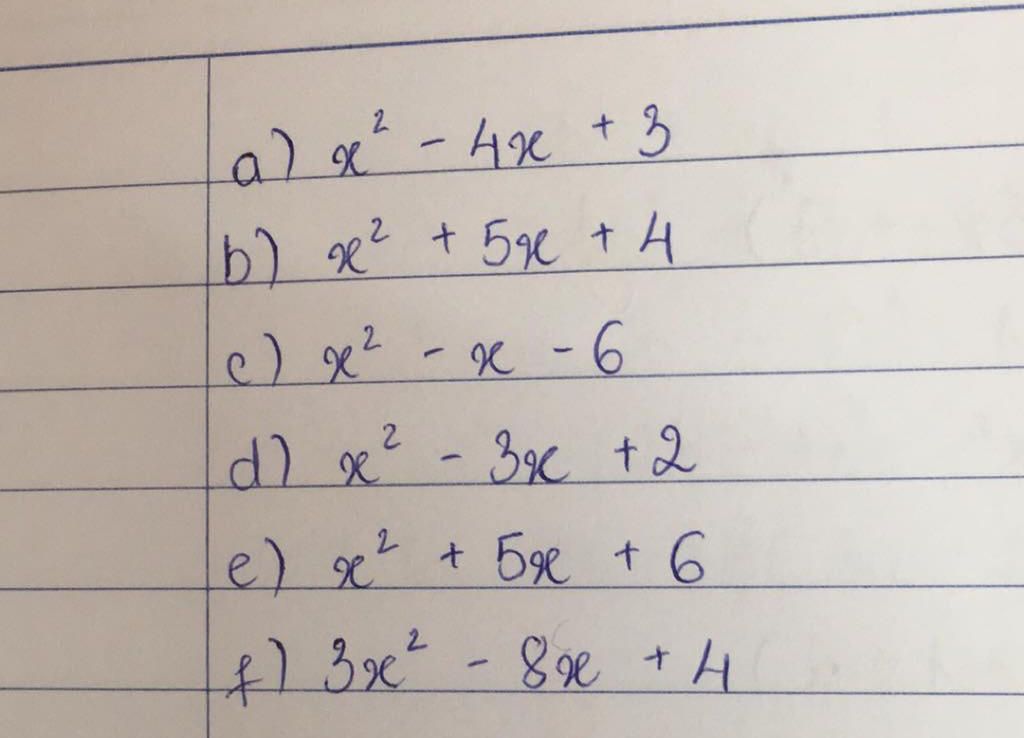 a) x² - 4x + 3
b) x² + 5x + 4
c) x² - x - 6
d) x² - 3x + 2
e) x² + 5x + 6
f) 3x² - 8x + 4